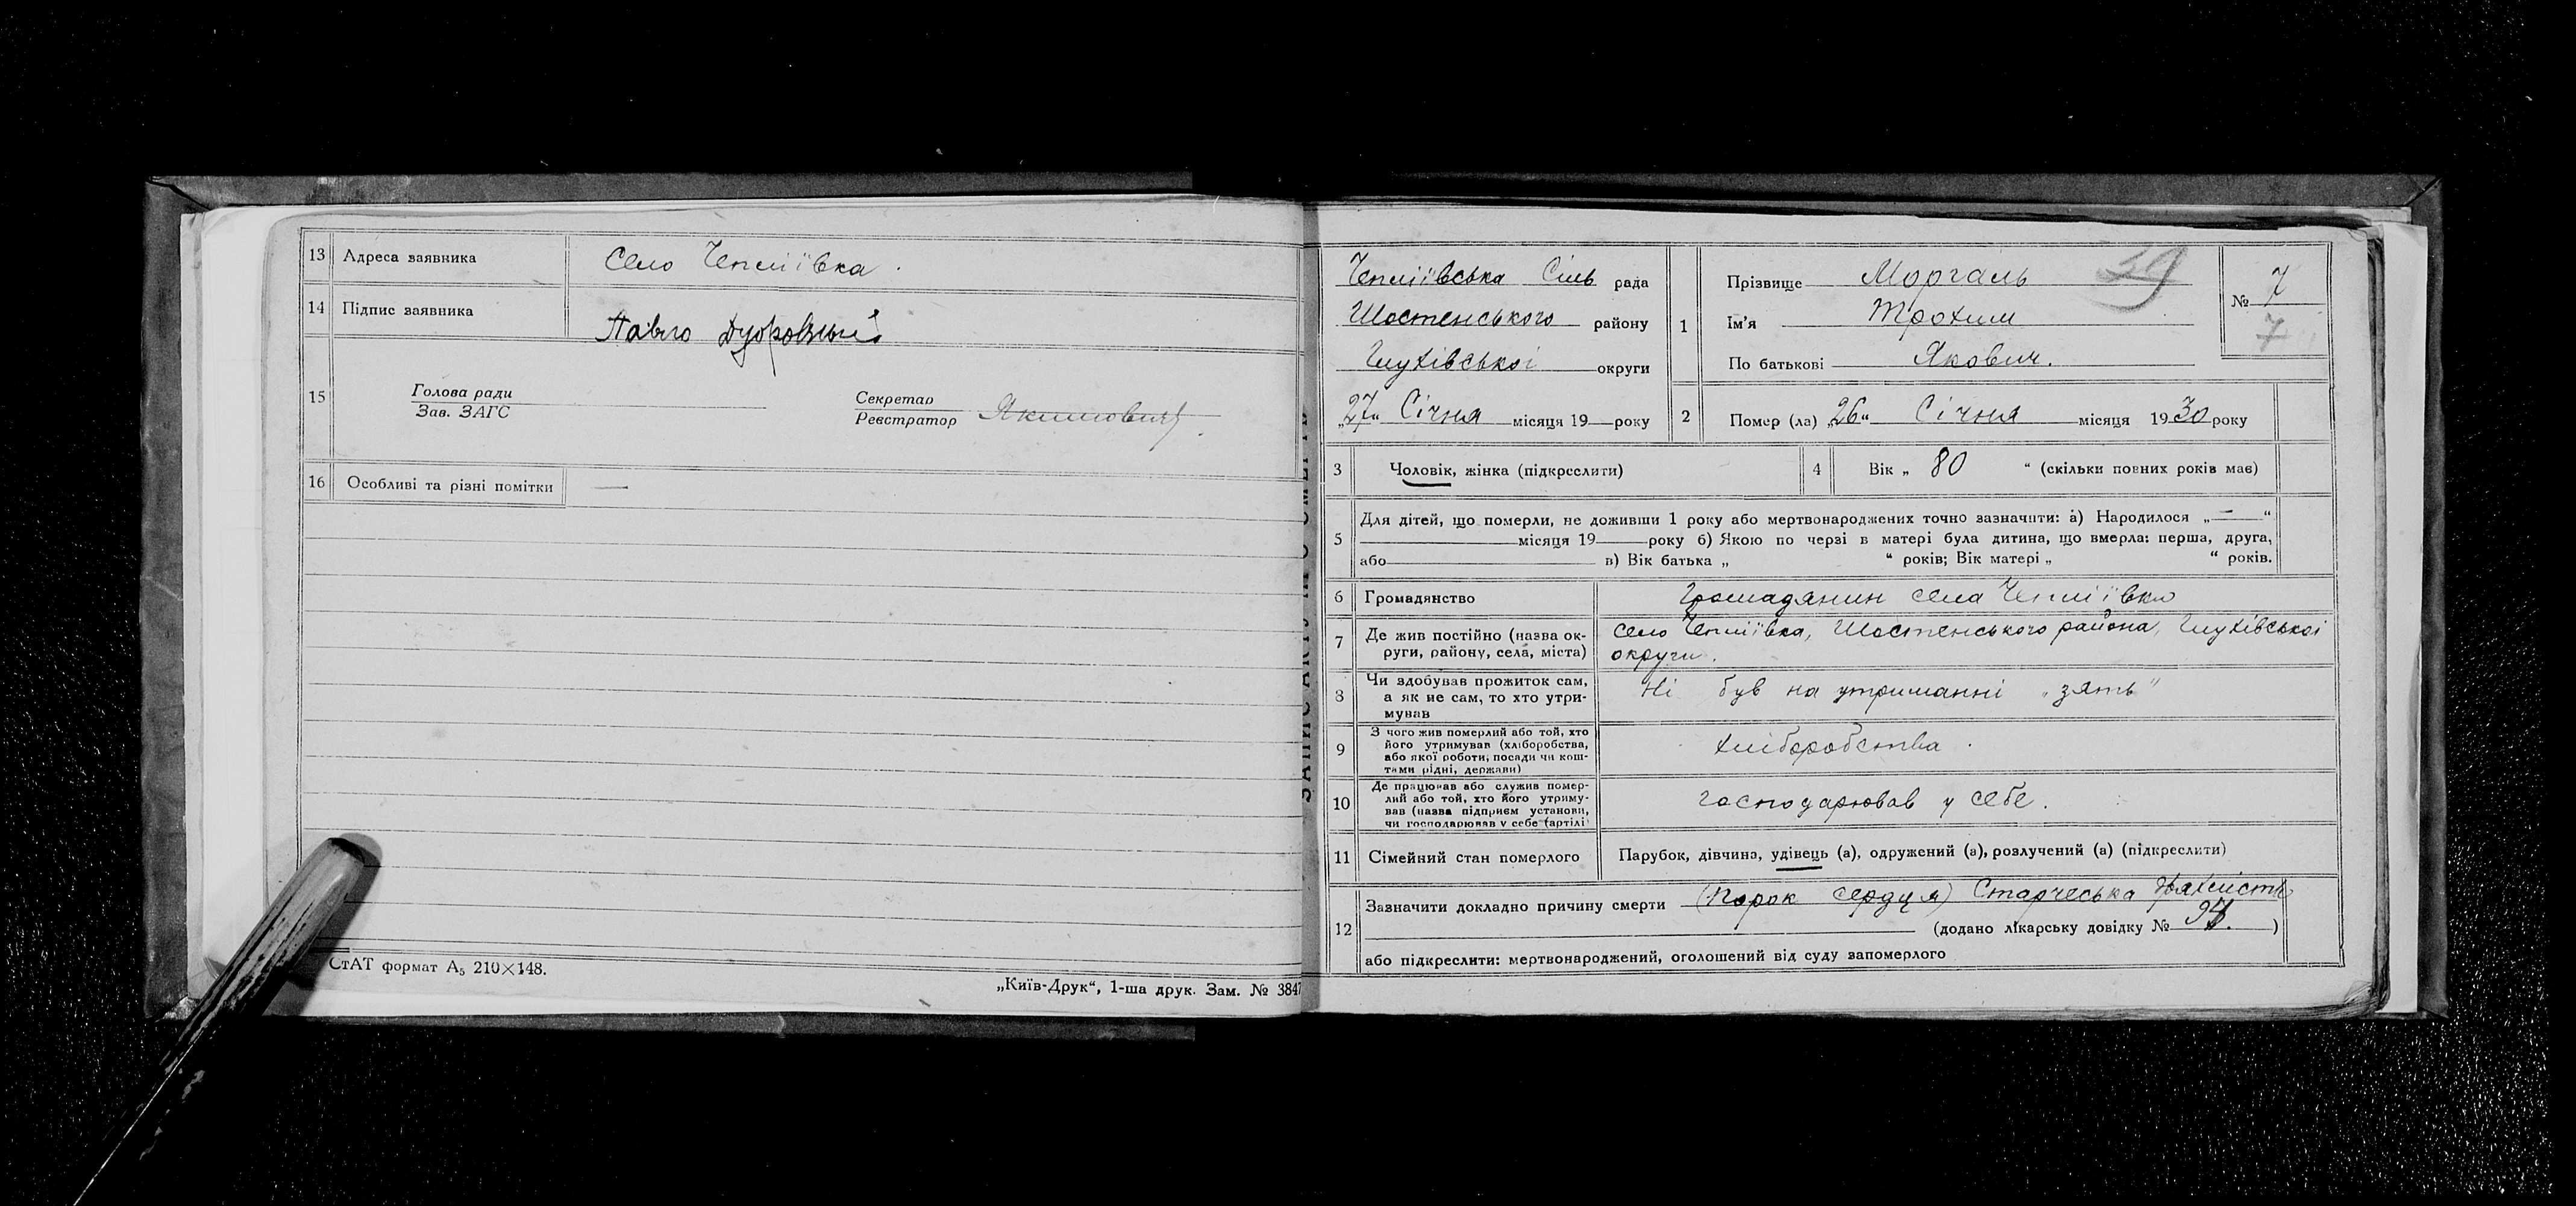 13 Адреса заявника Село Чепліївка.
14 Підпис заявника Павло Дубровный
15 Голова ради
Зав. ЗАГС
Секретар
Реєстратор Якимович
16 Особливі та різні помітки —
СтАТ формат А₅ 210×148.
„Київ-Друк“, 1-ша друк. Зам. № 3847
Чепліївська Сіль рада
Шостенського району
Глухівської округи
„27“ Січня місяця 19 року
1 Прізвище Моргаль 59
Ім'я Трохим
По батькові Якович.
№ 7
7
2 Помер (ла) „26“ Січня місяця 1930 року
3 Чоловік, жінка (підкреслити)
4 Вік „ 80 “ (скільки повних років має)
5 Для дітей, що померли, не доживши 1 року або мертвонароджених точно зазначити: а) Народилося „—“
місяця 19 року б) Якою по черзі в матері була дитина, що вмерла: перша, друга,
або в) Вік батька „ “ років; Вік матері „ “ років.
6 Громадянство Громадянин села Чепліївки
7 Де жив постійно (назва ок-
руги, району, села, міста)
Село Чепліївка, Шостенського района, Глухівської
округи.
8 Чи здобував прожиток сам,
а як не сам, то хто утри-
мував
Ні був на утриманні „зять“
9 З чого жив померлий або той, хто
його утримував (хліборобства,
або якої роботи, посади чи кош-
тами рідні, держави)
хліборобства.
10 Де працював або служив помер-
лий або той, хто його утриму-
вав (назва підприєм установи,
чи господарював у себе (артілі)
господарював у себе.
11 Сімейний стан померлого Парубок, дівчина, удівець (а), одружений (а), розлучений (а) (підкреслити)
12 Зазначити докладно причину смерти (Порок сердця) Старческа
(додано лікарську довідку № )
або підкреслити: мертвонароджений, оголошений від суду запомерлого